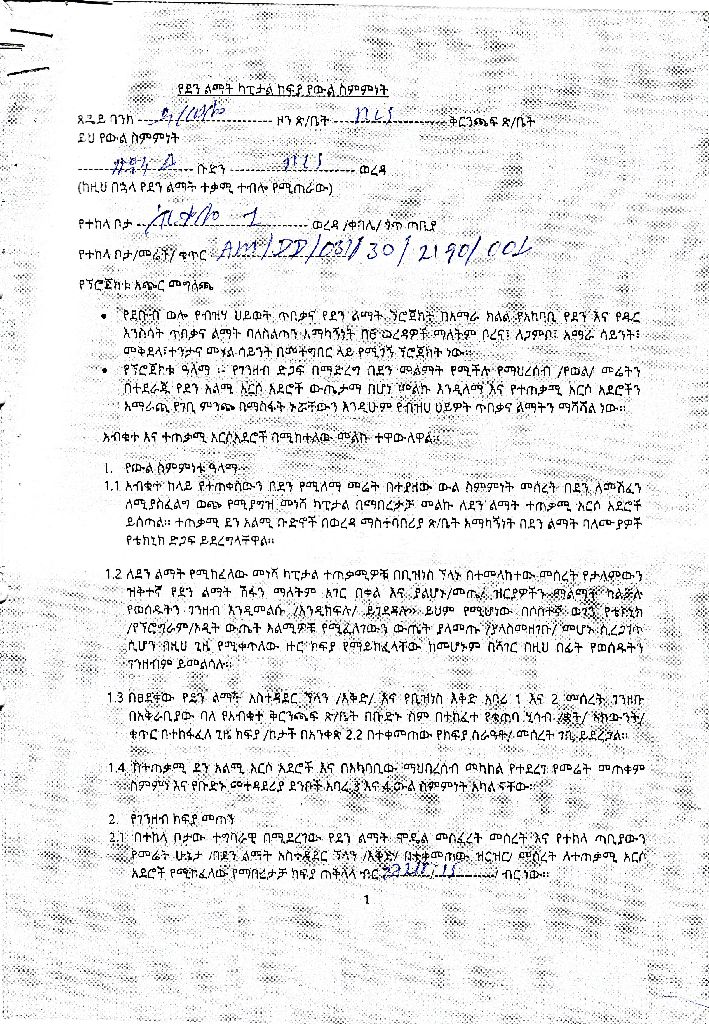 የደን ልማት ካፒታል ክፍያ የውል ስምምነት
ጸደይ ባንክ ዞን ጽ/ቤት ቅርንጫፍ ጽ/ቤት
ይህ የውል ስምምነት
ቡድን ወረዳ
(ከዚህ በኋላ የደን ልማት ተቃሚ ተብሎ የሚጠራው)
የተከላ ቦታ 1 ወረዳ /ቀበሌ/ ጎጥ ጣቢያ
የተከላ ቦታ/መሬት/ ቁጥር AM/DD/031/30/2190/001
የፕሮጀክቱ አጭር መግለጫ
• የደቡብ ወሎ የብዝሃ ህይወት ጥበቃና የደን ልማት ፕሮጀክት በአማራ ክልል የአካባቢ የደን እና የዱር
እንስሳት ጥበቃና ልማት ባለስልጣን አማካኝነት በ6 ወረዳዎች ማለትም ቦረና፣ ለጋምቦ፣ አማራ ሳይንት፣
መቅደላ፣ተንታና መሃል ሳይንት በመተግበር ላይ የሚገኝ ፕሮጀክት ነው።
• የፕሮጀክቱ ዓላማ ፡- የገንዘብ ድጋፍ በማድረግ በደን መልማት የሚችሉ የማህረሰብ /የወል/ መሬትን
በተደራጁ የደን አልሚ አርሶ አደሮች ውጤታማ በሆነ መልኩ እንዲለማ እና የተጠቃሚ አርሶ አደሮችን
አማራጪ የገቢ ምንጭ በማስፋት ኑሯቸውን እንዲሁም የብዝሀ ህይዎት ጥበቃና ልማትን ማሻሻል ነው።
አብቁተ እና ተጠቃሚ አርሶአደሮች በሚከተለው መልኩ ተዋውለዋል።
1. የውል ስምምነቱ ዓላማ
1.1 አብቁተ ከላይ የተጠቀሰውን በደን የሚለማ መሬት በተያዘው ውል ስምምነት መሰረት በደን ለመሸፈን
ለሚያስፈልግ ወጭ የሚያግዝ መነሻ ካፒታል በማበረታቻ መልኩ ለደን ልማት ተጠቃሚ አርሶ አደሮች
ይሰጣል። ተጠቃሚ ደን አልሚ ቡድኖች በወረዳ ማስተባበሪያ ጽ/ቤት አማካኝነት በደን ልማት ባለሙያዎች
የቴክኒክ ድጋፍ ይደረግላቸዋል።
1.2 ለደን ልማት የሚከፈለው መነሻ ካፒታል ተጠቃሚዎቹ በቢዝነስ ፕላኑ በተመላከተው መሰረት የታለመውን
ዝቅተኛ የደን ልማት ሽፋን ማለትም አገር በቀል እና ያልሆኑ/መጤ/ ዝርያዎችን ማልማት ካልቻሉ
የወሰዱትን ገንዘብ እንዲመልሱ /እንዲከፍሉ/ ይገደዳሉ። ይህም የሚሆነው በሶስተኛ ወገን የቴክኒክ
/የፕሮግራም/ኦዲት ውጤት አልሚዎቹ የሚፈለገውን ውጤት ያላመጡ /ያላስመዘገቡ/ መሆኑ ሲረጋገጥ
ሲሆን በዚህ ጊዜ የሚቀጥለው ዙር ክፍያ የማይከፈላቸው ከመሆኑም በሻገር በዚህ በፊት የወሰዱትን
ገንዘብም ይመልሳሉ።
1.3 በፀደቀው የደን ልማት አስተዳደር ፕላን /እቅድ/ እና የቢዝነስ እቅድ አባሪ 1 እና 2 መሰረት ገንዘቡ
በአቅራቢያው ባለ የአብቁተ ቅርንጫፍ ጽ/ቤት በቡድኑ ስም በተከፈተ የቁጠባ ሂሳብ /ቋት/ አካውንት/
ቁጥር በተከፋፈለ ጊዜ ክፍያ /ከታች በአንቀጽ 2.2 በተቀመጠው የክፍያ ስራዓት/ መሰረት ገቢ ይደረጋል።
1.4 ከተጠቃሚ ደን አልሚ አርሶ አደሮች እና በአካባቢው ማህበረሰብ መካከል የተደረገ የመሬት መጠቀም
ስምምነት እና የቡድኑ መተዳደሪያ ደንቦች አባሪ 3 እና 4 ውል ስምምነት አካል ናቸው።
2. የገንዘብ ክፍያ መጠን
2.1 በተከላ ቦታው ተግባራዊ በሚደረገው የደን ልማት ሞዴል መስፈረት መሰረት እና የተከላ ጣቢያውን
የመሬት ሁኔታ /በደን ልማት አስተዳደር ፕላን /እቅድ/ በተቀመጠው ዝርዝር/ መሰረት ለተጠቃሚ አርሶ
አደሮች የሚከፈለው የማበረታቻ ክፍያ ጠቅላላ ብር / ብር ነው።
1